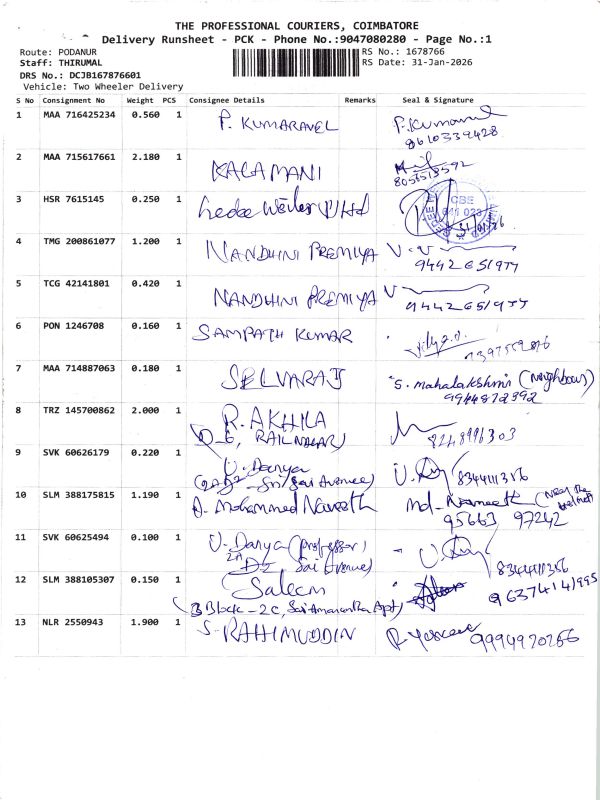 THE PROFESSIONAL COURIERS, COIMBATORE
Delivery Runsheet - PCK - Phone No.:9047080280 - Page No.:1
Route: PODANUR RS No.: 1678766
Staff: THIRUMAL RS Date: 31-Jan-2026
DRS No.: DCJB167876601
Vehicle: Two Wheeler Delivery
S No Consignment No Weight PCS Consignee Details Remarks Seal & Signature
1 MAA 716425234 0.560 1 P. KUMARAVEL P. Kumaravel
8610339428
2 MAA 715617661 2.180 1 KALAMANI
8056518592
3 HSR 7615145 0.250 1
CBE
641 023
4 TMG 200861077 1.200 1 NANDHINI PREMIYA
5 TCG 42141801 0.420 1 NANDHINI PREMIYA
6 PON 1246708 0.160 1 SAMPATH KUMAR
7 MAA 714887063 0.180 1 SELVARAJ S. Mahalakshmi (Neighbour)
9944872392
8 TRZ 145700862 2.000 1 R. AKHILA
D-6, RAIL NAGAR) 8248996303
9 SVK 60626179 0.220 1 U. Danya
Sri Sai Avenue) 8344111356
10 SLM 388175815 1.190 1 A. Mohammed Naveeth Md. (Near the
95663 97242
11 SVK 60625494 0.100 1 U. Danya (professor)
Sai Avenue) 8344111356
12 SLM 388105307 0.150 1 Saleem
(B Block - 2C, Sai Amarantha Apt) 9637414995
13 NLR 2550943 1.900 1 S. RAHIMUDDIN 9994920266